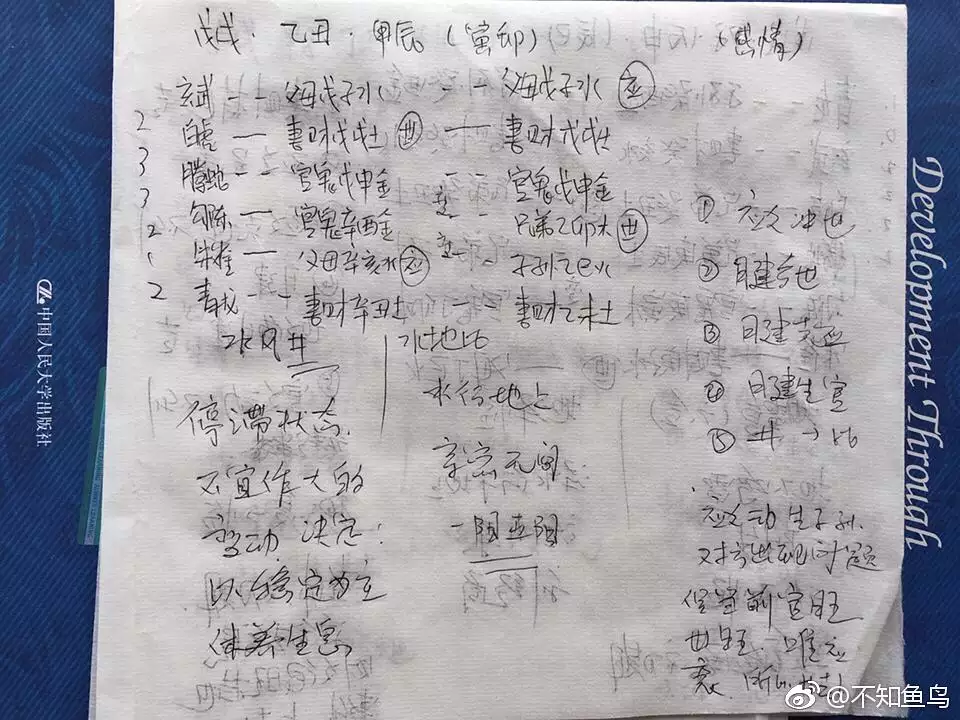 戊戌·乙丑·甲辰(寅卯) (感情)
玄武 -- 父母戊子水 -- 父母戊子水 应
2 白虎 — 妻财戊戌土 世 — 妻财戊戌土
3 腾蛇 -- 官鬼戊申金 -- 官鬼戊申金
3 勾陈 — 官鬼辛酉金 -- 兄弟乙卯木 世
2 朱雀 — 父母辛亥水 应 -- 子孙乙巳火
2 青龙 -- 妻财辛丑土 妻财乙未土
水风井
水地比
停滞状态
不宜作大的
变动 决定:
以稳定为主
休养生息
水行地上
亲密无间
一阳五阴
① 应爻冲世
② 日建合世
③ 日建克应
④ 日建生官
⑤ 井→比
应爻动生子孙
对方出现问题
但当前官旺
世旺 唯应
衰
中国人民大学出版社
Development Through
@不知鱼鸟